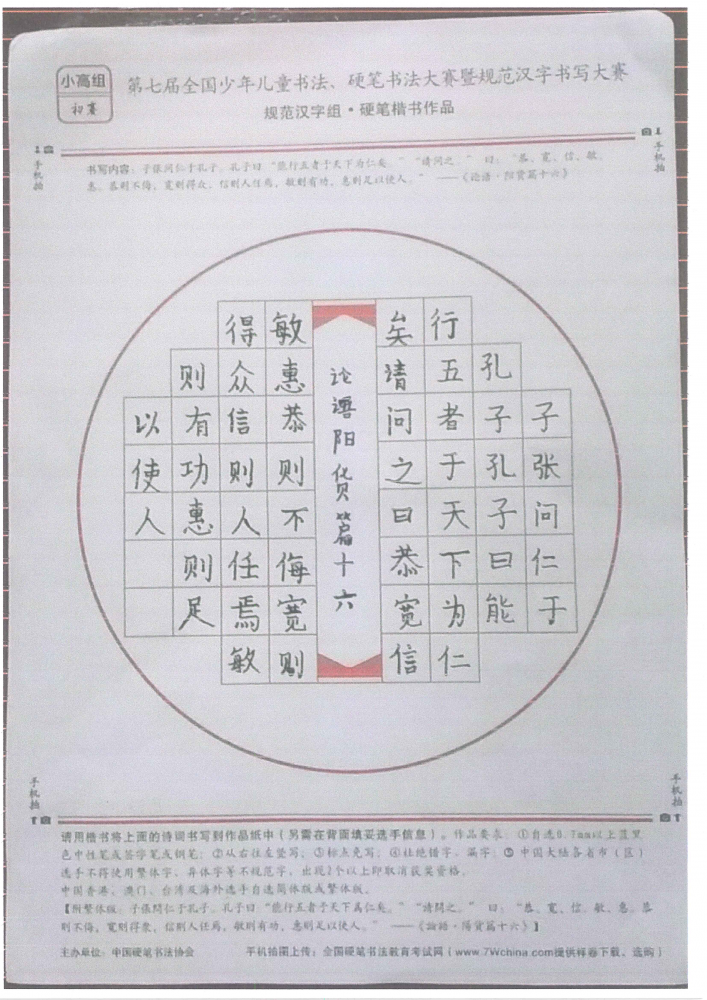 小高组
初赛
第七届全国少年儿童书法、硬笔书法大赛暨规范汉字书写大赛
规范汉字组·硬笔楷书作品
手机拍
手机拍
书写内容：子张问仁于孔子。孔子曰“能行五者于天下为仁矣。”“请问之。”曰：“恭、宽、信、敏、
惠。恭则不侮，宽则得众，信则人任焉，敏则有功，惠则足以使人。”——《论语·阳货篇十六》
子张问仁于
孔子孔子曰能
行五者于天下为仁
矣请问之曰恭宽信
论语阳货篇十六
敏惠恭则不侮宽则
得众信则人任焉敏
则有功惠则足
以使人
手机拍
手机拍
请用楷书将上面的诗词书写到作品纸中（另需在背面填妥选手信息）。作品要求：①自选0.7mm以上蓝黑
色中性笔或签字笔或钢笔；②从右往左竖写；③标点免写；④杜绝错字、漏字；⑤中国大陆各省市（区）
选手不得使用繁体字、异体字等不规范字，出现2个以上即取消获奖资格。
中国香港、澳门、台湾及海外选手自选简体版或繁体版。
【附繁体版：子張問仁于孔子。孔子曰“能行五者于天下爲仁矣。”“請問之。”曰：“恭、寬、信、敏、惠。恭
则不侮，寬則得衆，信則人任焉，敏則有功，惠則足以使人。”——《論語·陽貨篇十六》】
主办单位：中国硬笔书法协会 手机拍图上传：全国硬笔书法教育考试网（www.7Wchina.com提供样卷下载、选购）